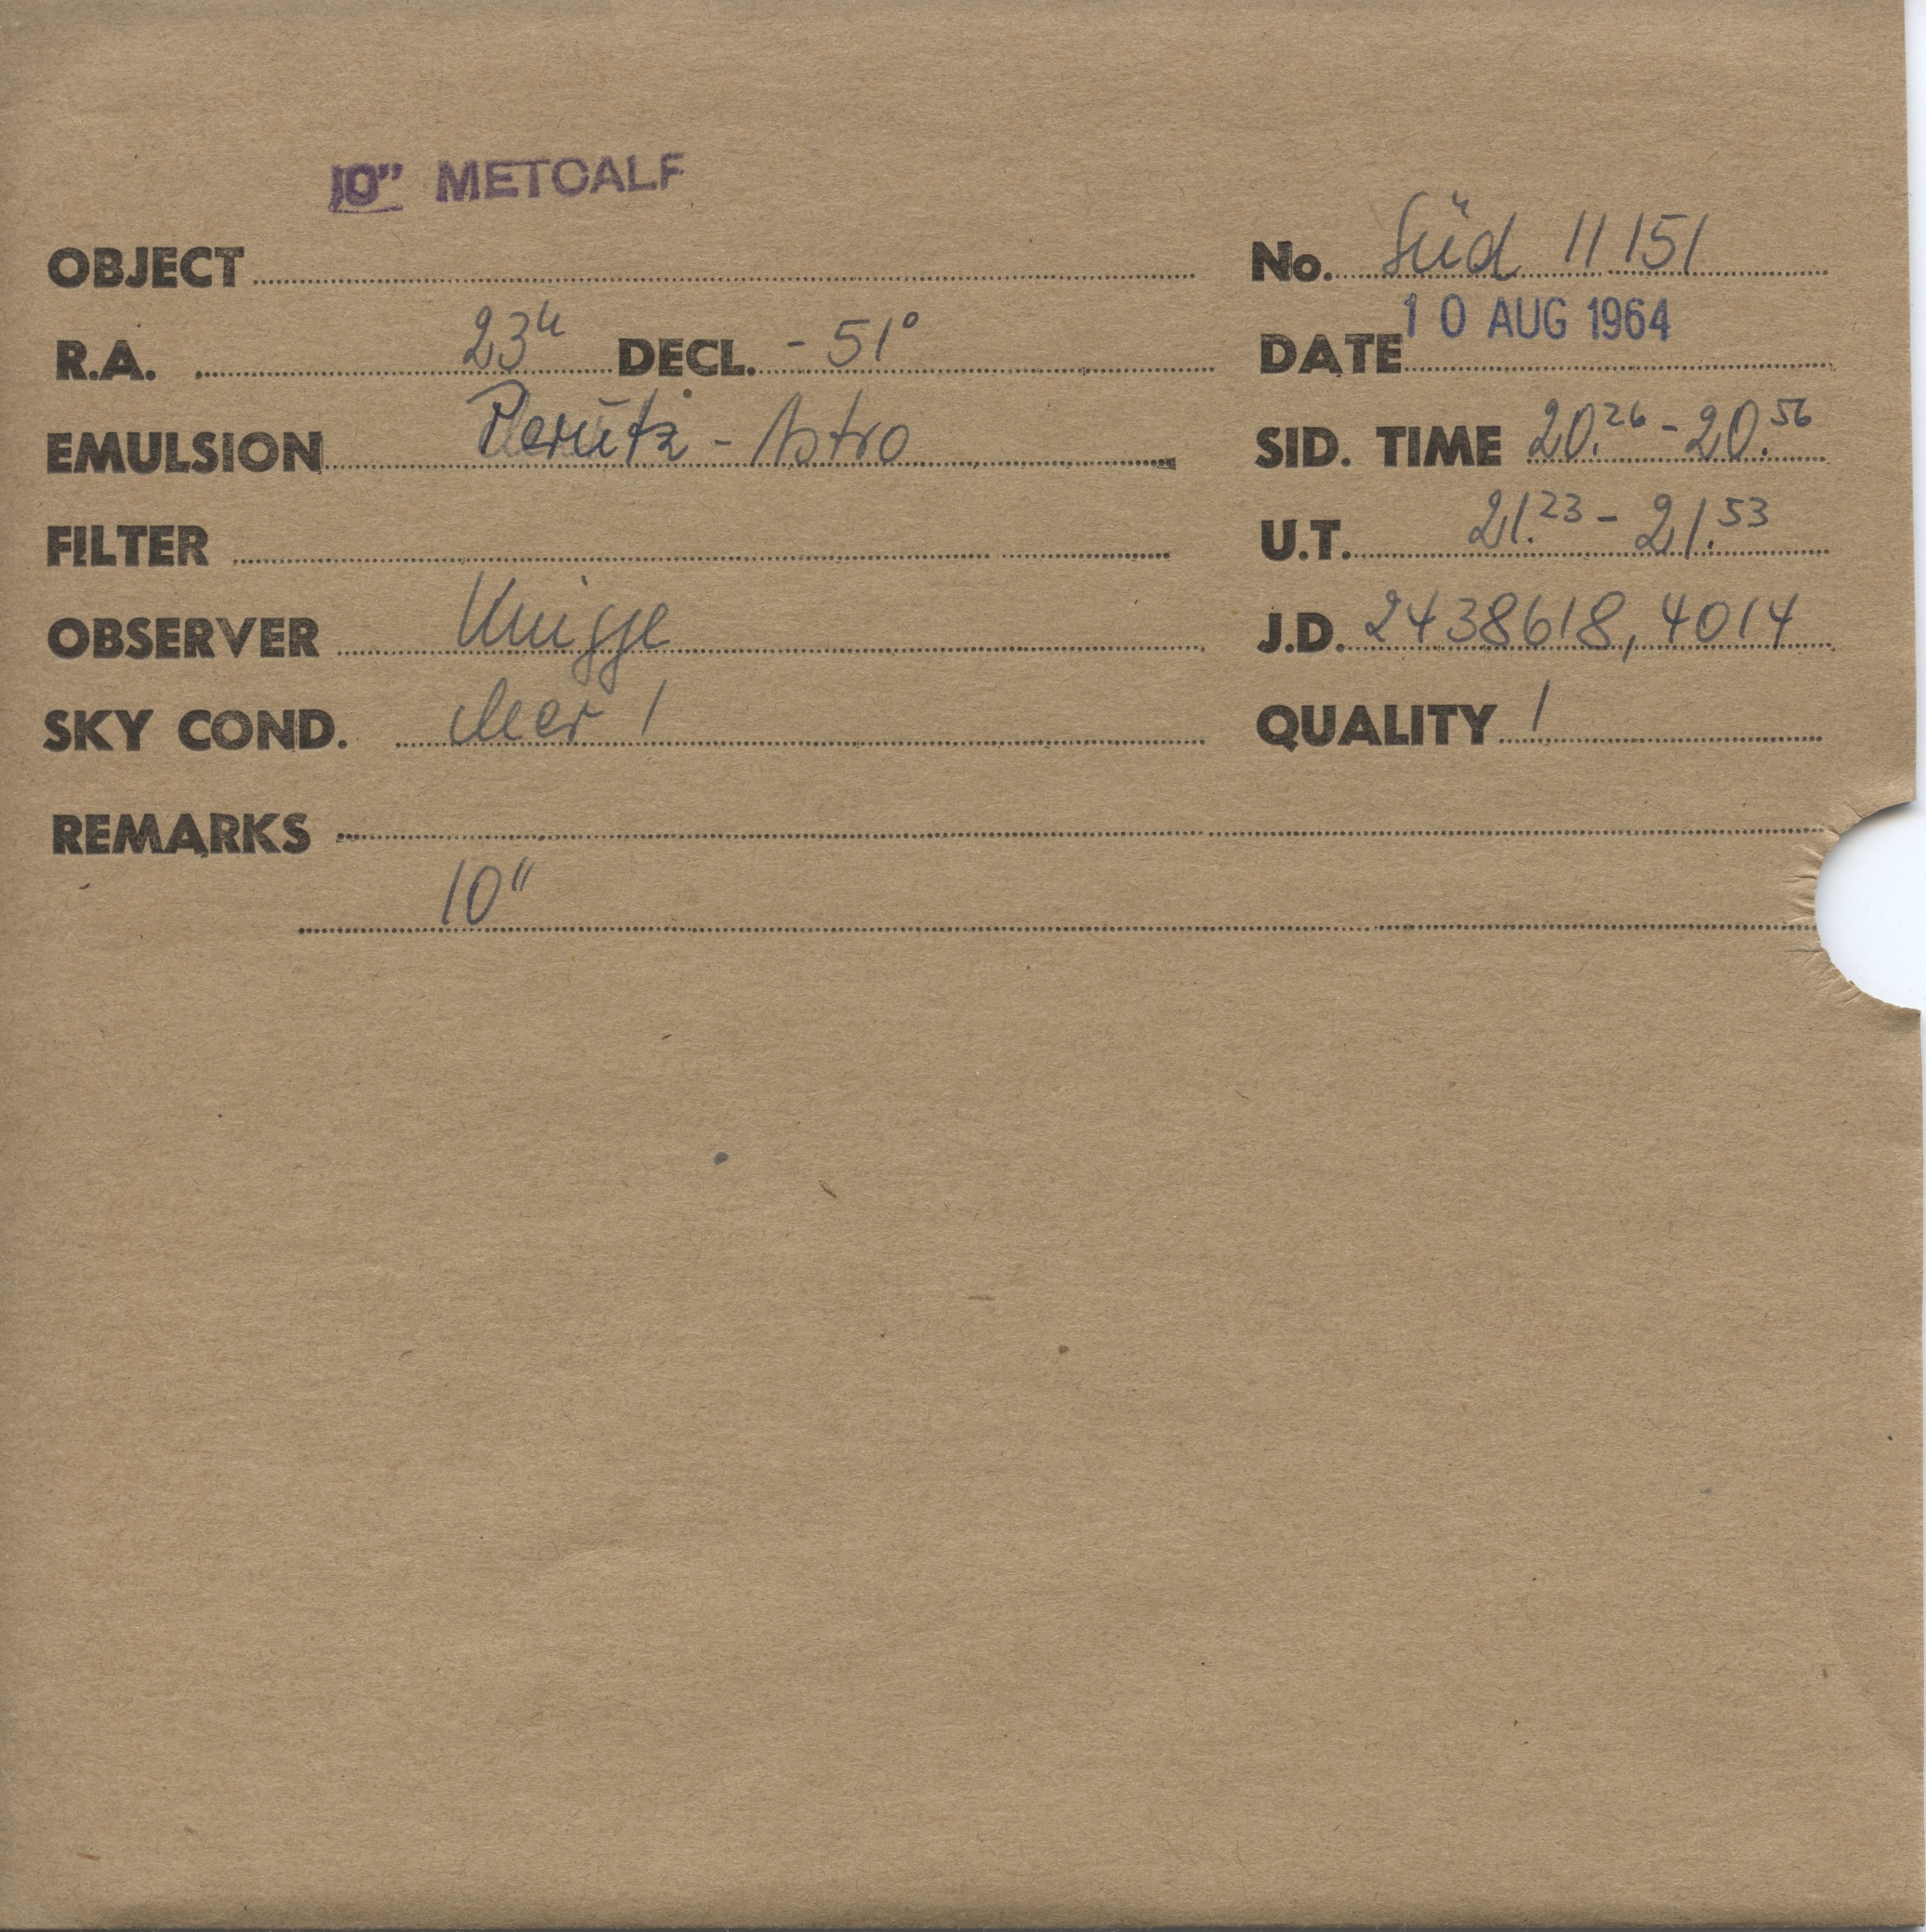 10" METCALF
OBJECT No. Süd 11151
R.A. 23h DECL. -51° DATE 10 AUG 1964
EMULSION Perutz - Astro SID. TIME 20.26 - 20.56
FILTER U.T. 21.23 - 21.53
OBSERVER Knigge J.D. 2438618,4014
SKY COND. clear 1 QUALITY 1
REMARKS
10"